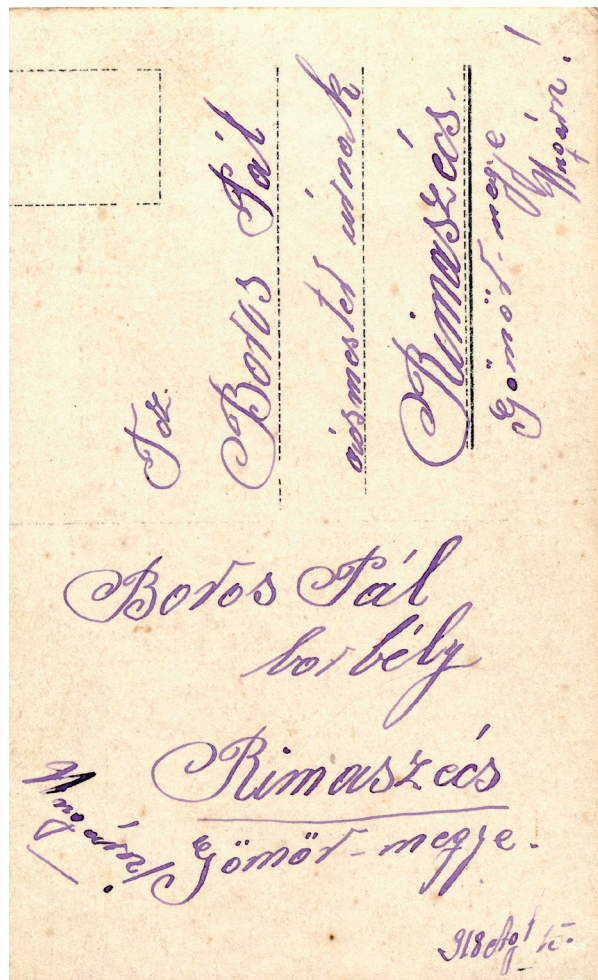 Tek.
Boros Pál
ácsmester úrnak
Rimaszécs.
Gömör-megye
Ungarn!
Boros Pál
borbély
Rimaszécs
Gömör-megye.
918 Aug 15.